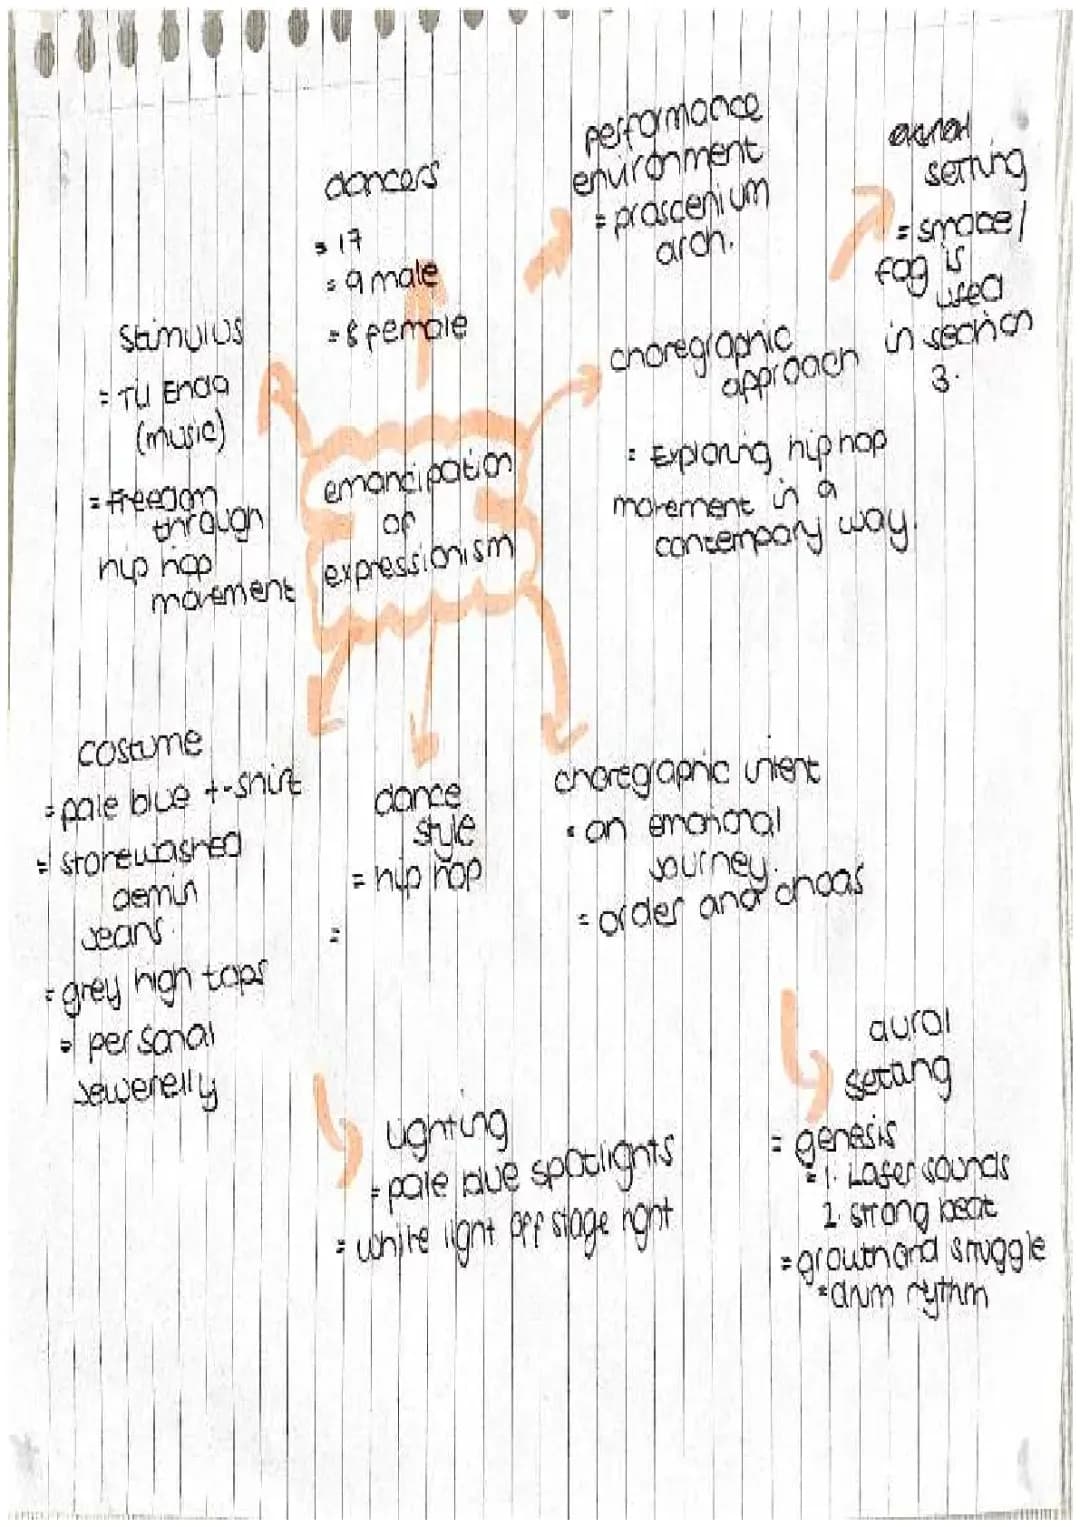 dancers
= 17
= 9 male
= 8 female
performance
environment
= proscenium
arch.
setting
= smoce/
fog is
used
in section
3.
stimulus
= Til Enda
(music)
= freedom
through
hip hop
movement
emancipation
of
expressionism
choregraphic
approach
= Exploring hip hop
movement in a
contempory way.
costume
= pale blue t-shirt
= stonewashed
demin
jeans.
= grey high tops
= personal
Jewerelly
dance
style
= hip hop
=
choregraphic intent
= an emotional
journey.
= order and choas
Lighting
= pale blue spotlights
= white light off stage right
aural
setting
= genesis
= 1. Laser sounds
2. strong beat
= growth and struggle
= drum rythm